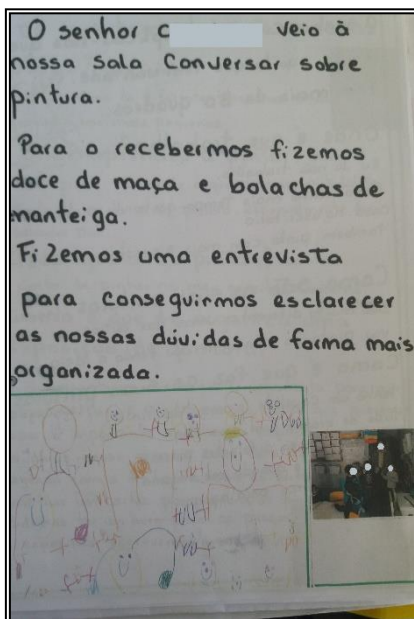 O senhor c veio à
nossa sala conversar sobre
pintura.
Para o recebermos fizemos
doce de maça e bolachas de
manteiga.
Fizemos uma entrevista
para conseguirmos esclarecer
as nossas dúvidas de forma mais
organizada.